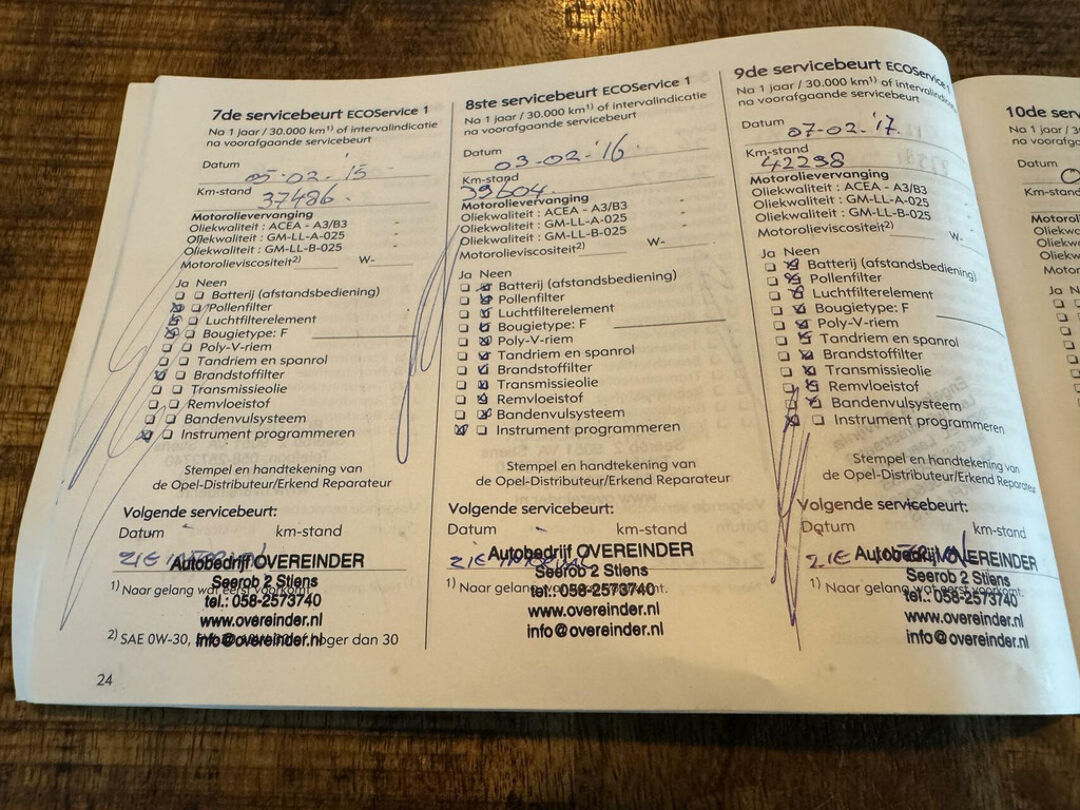 7de servicebeurt ECOService 1
Na 1 jaar / 30.000 km¹⁾ of intervalindicatie
na voorafgaande servicebeurt
Datum 05-02-'15
Km-stand 37486.
Motorolievervanging
Oliekwaliteit : ACEA - A3/B3 -
Oliekwaliteit : GM-LL-A-025 -
Oliekwaliteit : GM-LL-B-025 -
Motorolieviscositeit²⁾ W-
Ja Neen
Batterij (afstandsbediening)
Pollenfilter
Luchtfilterelement
Bougietype: F
Poly-V-riem
Tandriem en spanrol
Brandstoffilter
Transmissieolie
Remvloeistof
Bandenvulsysteem
Instrument programmeren
Stempel en handtekening van
de Opel-Distributeur/Erkend Reparateur
Volgende servicebeurt:
Datum km-stand
ZIE INTERVAL
Autobedrijf OVEREINDER
Seerob 2 Stiens
¹⁾ Naar gelang wat eerst voorkomt.
tel.: 058-2573740
www.overeinder.nl
info@overeinder.nl
²⁾ SAE 0W-30, hoger dan 30
24
8ste servicebeurt ECOService 1
Na 1 jaar / 30.000 km¹⁾ of intervalindicatie
na voorafgaande servicebeurt
Datum 03-02-'16
Km-stand
39604.
Motorolievervanging
Oliekwaliteit : ACEA - A3/B3 -
Oliekwaliteit : GM-LL-A-025 -
Oliekwaliteit : GM-LL-B-025 -
Motorolieviscositeit²⁾ W-
Ja Neen
Batterij (afstandsbediening)
Pollenfilter
Luchtfilterelement
Bougietype: F
Poly-V-riem
Tandriem en spanrol
Brandstoffilter
Transmissieolie
Remvloeistof
Bandenvulsysteem
Instrument programmeren
Stempel en handtekening van
de Opel-Distributeur/Erkend Reparateur
Volgende servicebeurt:
Datum km-stand
ZIE INTERVAL
Autobedrijf OVEREINDER
Seerob 2 Stiens
¹⁾ Naar gelang wat eerst voorkomt.
tel.: 058-2573740
www.overeinder.nl
info@overeinder.nl
9de servicebeurt ECOService 1
Na 1 jaar / 30.000 km¹⁾ of intervalindicatie
na voorafgaande servicebeurt
Datum 07-02-'17.
Km-stand
42298
Motorolievervanging
Oliekwaliteit : ACEA - A3/B3
Oliekwaliteit : GM-LL-A-025
Oliekwaliteit : GM-LL-B-025
Motorolieviscositeit²⁾ W-
Ja Neen
Batterij (afstandsbediening)
Pollenfilter
Luchtfilterelement
Bougietype: F
Poly-V-riem
Tandriem en spanrol
Brandstoffilter
Transmissieolie
Remvloeistof
Bandenvulsysteem
Instrument programmeren
Stempel en handtekening van
de Opel-Distributeur/Erkend Reparateur
Volgende servicebeurt:
Datum km-stand
ZIE INTERVAL
Autobedrijf OVEREINDER
Seerob 2 Stiens
¹⁾ Naar gelang wat eerst voorkomt.
tel.: 058-2573740
www.overeinder.nl
info@overeinder.nl
10de serv
Na 1 jaar / 3
na voorafga
Datum
Km-stand
Motorol
Oliekwa
Oliekwa
Oliekwa
Motor
Ja N